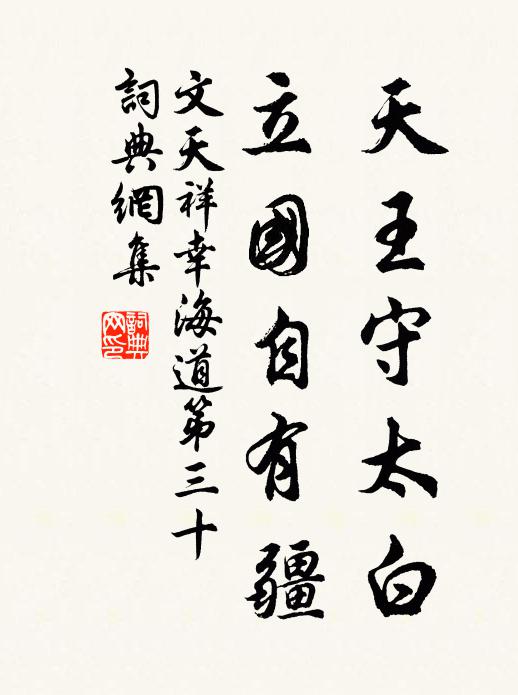 天王守太白
立國自有疆
文天祥幸海道第三十
詞典網集
詞典網印